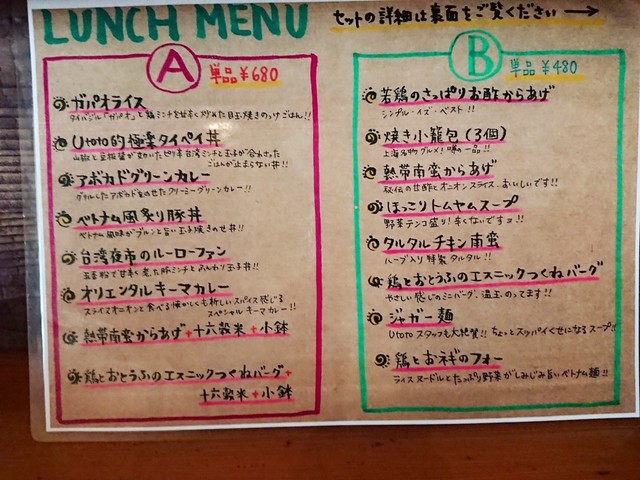 LUNCH MENU
セットの詳細は裏面をご覧ください→
A
単品¥680
ガパオライス
タイバジル「ガパオ」と鶏ミンチを甘辛く炒めた目玉焼きのっけごはん!!
Utoto的極楽タイペイ丼
山椒と豆板醤が効いたピリ辛台湾ミンチと玉子が合わさった
ごはんが止まらない丼!!
アボカドグリーンカレー
グリルしたアボカドをのせたクリーミーグリーンカレー!!
ベトナム風炙り豚丼
ベトナム風味がプルンと旨い玉子焼きのせ丼!!
台湾夜市のルーローファン
五香粉で甘辛く煮た豚ミンチとふんわり玉子丼!!
オリエンタルキーマカレー
スライスオニオンと食べる懐かしくも新しいスパイス感じる
スペシャルキーマカレー!!
熱帯南蛮からあげ+十六穀米+小鉢
鶏とおとうふのエスニックつくねバーグ+
十六穀米+小鉢
B
単品¥480
若鶏のさっぱりお酢からあげ
シンプル・イズ・ベスト!!
焼き小籠包(3個)
上海名物グルメ!噂の一品!!
熱帯南蛮からあげ
秘伝の甘酢とオニオンスライス。おいしいです!!
ほっこりトムヤムスープ
野菜テンコ盛り!辛くないですヨ!!
タルタルチキン南蛮
ハーブ入り特製タルタル!!
鶏とおとうふのエスニックつくねバーグ
やさしい感じのミニバーグ、温玉のってます!!
ジャガー麺
Utotoスタッフも大絶賛!!ちょっとスッパイくせになるスープ!!
鶏とおネギのフォー
ライスヌードルとたっぷり野菜がしみじみ旨いベトナム麺!!